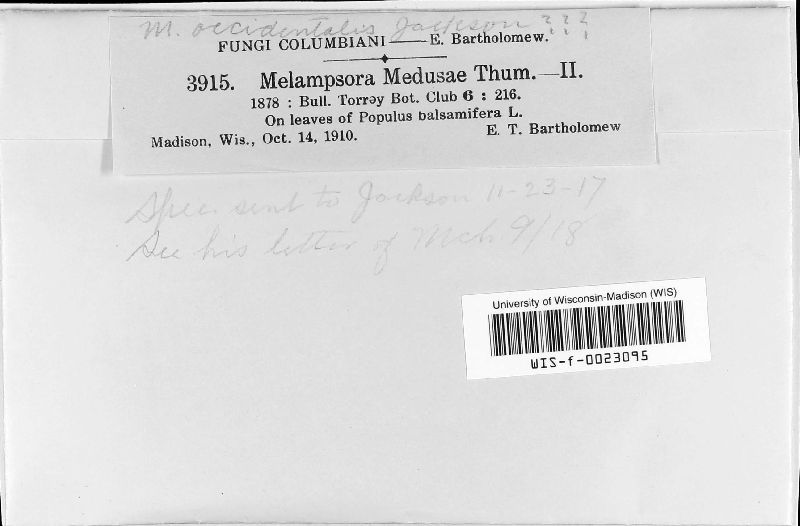 M. occidentalis Jackson ???
FUNGI COLUMBIANI — E. Bartholomew.
3915. Melampsora Medusae Thum.—II.
1878 : Bull. Torrey Bot. Club 6 : 216.
On leaves of Populus balsamifera L.
Madison, Wis., Oct. 14, 1910. E. T. Bartholomew
Spec. sent to Jackson 11-23-17
See his letter of Mch 9/18
University of Wisconsin-Madison (WIS)
WIS-f-0023095